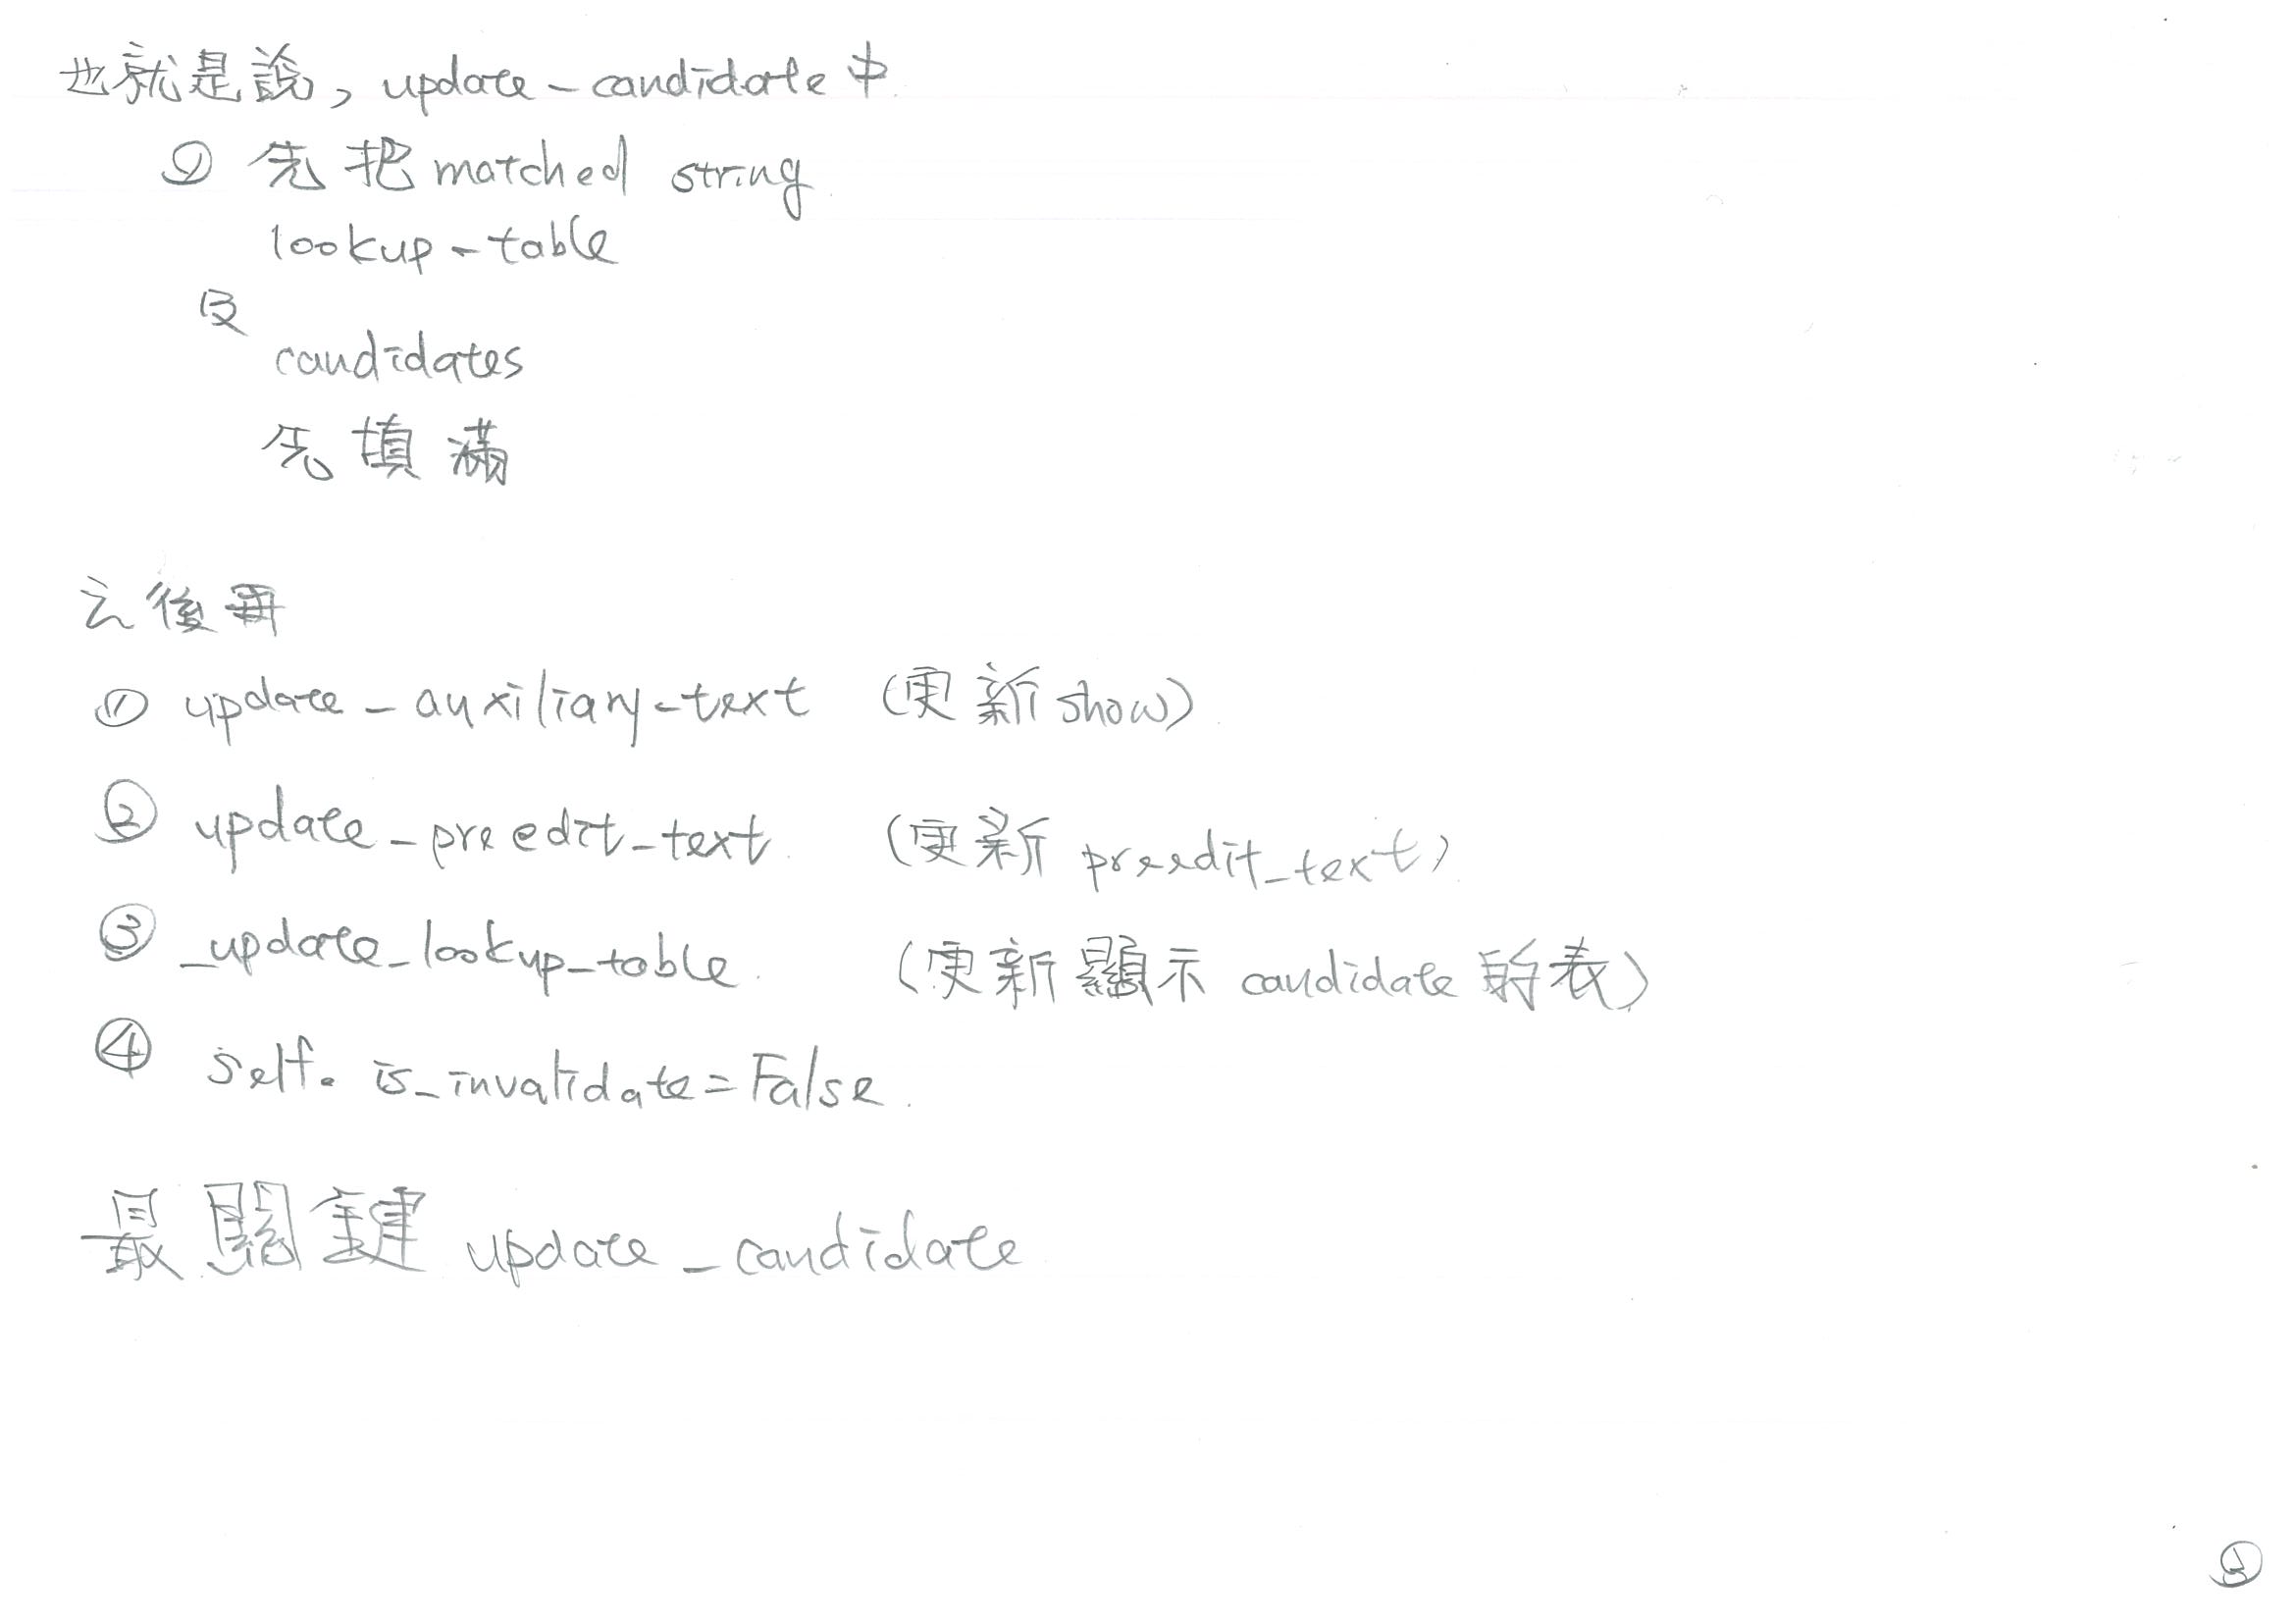 也就是說，update-candidate中
① 先把 matched string
lookup-table
及
candidates
先填滿
之後再
① update-auxiliary-text (更新show)
② update_preedit_text (更新 preedit_text)
③ _update_lookup_table (更新顯示 candidate 的表)
④ self.is_invalidate=False
最關鍵 update_candidate